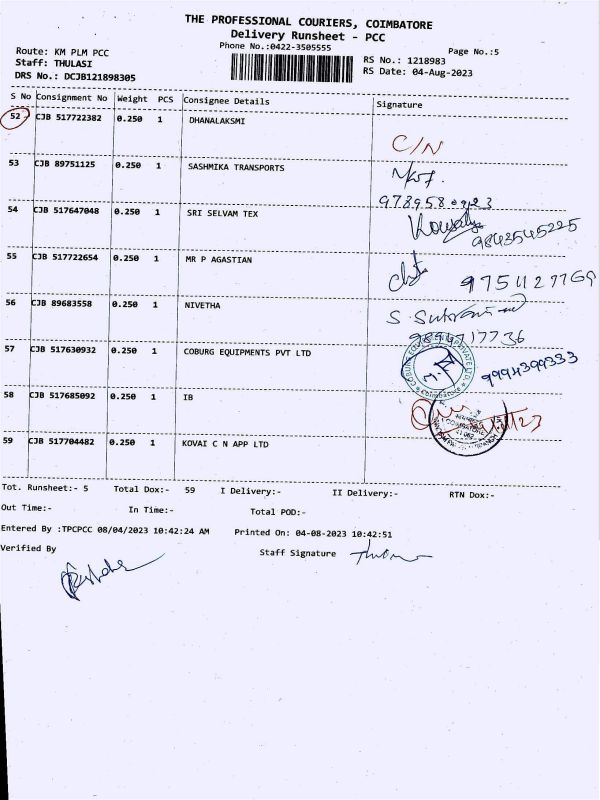 THE PROFESSIONAL COURIERS, COIMBATORE
Delivery Runsheet - PCC
Phone No.:0422-3505555
Page No.:5
Route: KM PLM PCC
Staff: THULASI
DRS No.: DCJB121898305
RS No.: 1218983
RS Date: 04-Aug-2023
S No Consignment No Weight PCS Consignee Details Signature
52 CJB 517722382 0.250 1 DHANALAKSMI
C/N
53 CJB 89751125 0.250 1 SASHMIKA TRANSPORTS
54 CJB 517647048 0.250 1 SRI SELVAM TEX
9843545225
55 CJB 517722654 0.250 1 MR P AGASTIAN
9751127769
56 CJB 89683558 0.250 1 NIVETHA
57 CJB 517630932 0.250 1 COBURG EQUIPMENTS PVT LTD
9994399333
58 CJB 517685092 0.250 1 IB
59 CJB 517704482 0.250 1 KOVAI C N APP LTD
Tot. Runsheet:- 5 Total Dox:- 59 I Delivery:- II Delivery:- RTN Dox:-
Out Time:- In Time:- Total POD:-
Entered By :TPCPCC 08/04/2023 10:42:24 AM Printed On: 04-08-2023 10:42:51
Verified By Staff Signature